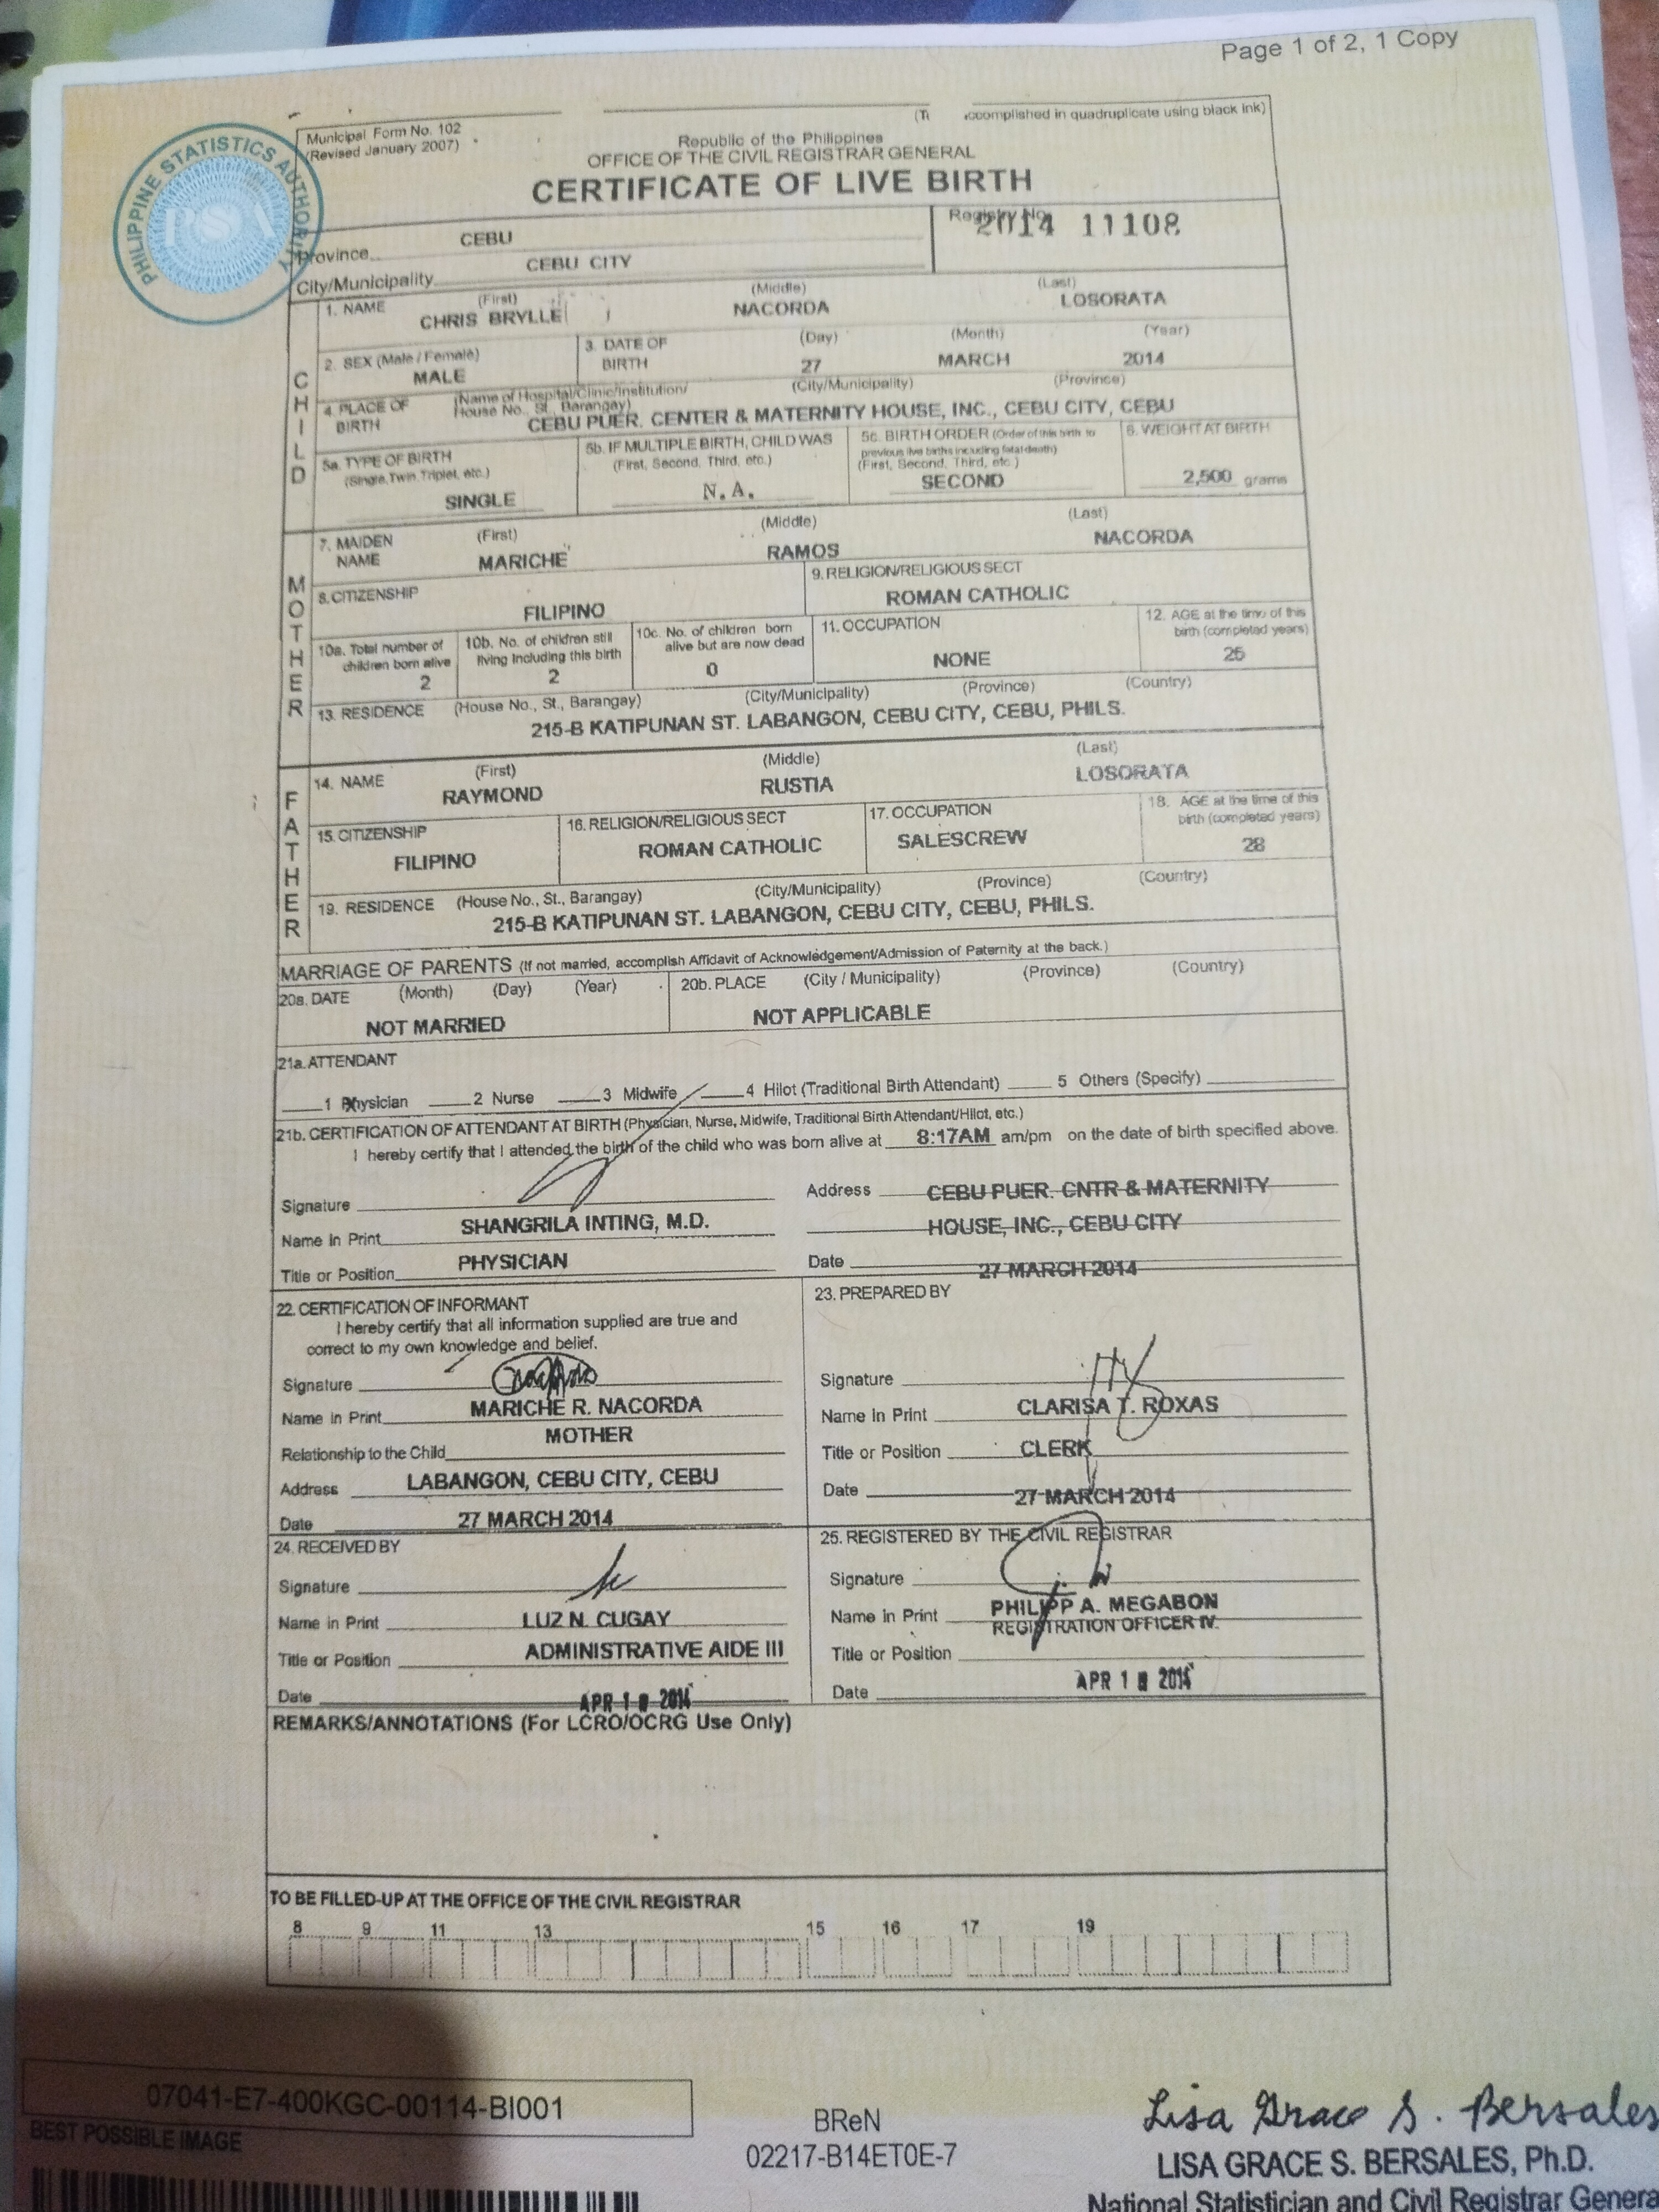 Page 1 of 2, 1 Copy
accomplished in quadruplicate using black ink)
Municipal Form No. 102
(Revised January 2007)
Republic of the Philippines
OFFICE OF THE CIVIL REGISTRAR GENERAL
CERTIFICATE OF LIVE BIRTH
PHILIPPINE STATISTICS AUTHORITY
PSA
Province CEBU
Registry No. 2014 11108
City/Municipality CEBU CITY
CHILD
1. NAME (First) (Middle) (Last)
CHRIS BRYLLE NACORDA LOSORATA
2. SEX (Male / Female) 3. DATE OF BIRTH (Day) (Month) (Year)
MALE 27 MARCH 2014
4. PLACE OF BIRTH (Name of Hospital/Clinic/Institution/ House No., St., Barangay) (City/Municipality) (Province)
CEBU PUER. CENTER & MATERNITY HOUSE, INC., CEBU CITY, CEBU
5a. TYPE OF BIRTH (Single, Twin, Triplet, etc.)
SINGLE
5b. IF MULTIPLE BIRTH, CHILD WAS (First, Second, Third, etc.)
N.A.
5c. BIRTH ORDER (Order of this birth to previous live births including fetal death) (First, Second, Third, etc.)
SECOND
6. WEIGHT AT BIRTH
2,500 grams
MOTHER
7. MAIDEN NAME (First) (Middle) (Last)
MARICHE RAMOS NACORDA
8. CITIZENSHIP
FILIPINO
9. RELIGION/RELIGIOUS SECT
ROMAN CATHOLIC
10a. Total number of children born alive
2
10b. No. of children still living including this birth
2
10c. No. of children born alive but are now dead
0
11. OCCUPATION
NONE
12. AGE at the time of this birth (completed years)
13. RESIDENCE (House No., St., Barangay) (City/Municipality) (Province) (Country)
215-B KATIPUNAN ST. LABANGON, CEBU CITY, CEBU, PHILS.
FATHER
14. NAME (First) (Middle) (Last)
RAYMOND RUSTIA LOSORATA
15. CITIZENSHIP
FILIPINO
16. RELIGION/RELIGIOUS SECT
ROMAN CATHOLIC
17. OCCUPATION
SALESCREW
18. AGE at the time of this birth (completed years)
28
19. RESIDENCE (House No., St., Barangay) (City/Municipality) (Province) (Country)
215-B KATIPUNAN ST. LABANGON, CEBU CITY, CEBU, PHILS.
MARRIAGE OF PARENTS (If not married, accomplish Affidavit of Acknowledgement/Admission of Paternity at the back.)
20a. DATE (Month) (Day) (Year) 20b. PLACE (City / Municipality) (Province) (Country)
NOT MARRIED NOT APPLICABLE
21a. ATTENDANT
1 Physician 2 Nurse 3 Midwife 4 Hilot (Traditional Birth Attendant) 5 Others (Specify)
21b. CERTIFICATION OF ATTENDANT AT BIRTH (Physician, Nurse, Midwife, Traditional Birth Attendant/Hilot, etc.)
I hereby certify that I attended the birth of the child who was born alive at 8:17AM am/pm on the date of birth specified above.
Signature
Address CEBU PUER. CNTR & MATERNITY
Name in Print SHANGRILA INTING, M.D.
HOUSE, INC., CEBU CITY
Title or Position PHYSICIAN
Date 27 MARCH 2014
22. CERTIFICATION OF INFORMANT
I hereby certify that all information supplied are true and
correct to my own knowledge and belief.
Signature
Name in Print MARICHE R. NACORDA
Relationship to the Child MOTHER
Address LABANGON, CEBU CITY, CEBU
Date 27 MARCH 2014
23. PREPARED BY
Signature
Name in Print CLARISA T. ROXAS
Title or Position CLERK
Date 27 MARCH 2014
24. RECEIVED BY
Signature
Name in Print LUZ N. CUGAY
Title or Position ADMINISTRATIVE AIDE III
Date APR 2014
25. REGISTERED BY THE CIVIL REGISTRAR
Signature
Name in Print PHILIPP A. MEGABON
REGISTRATION OFFICER IV
Title or Position
Date APR 2014
REMARKS/ANNOTATIONS (For LCRO/OCRG Use Only)
TO BE FILLED-UP AT THE OFFICE OF THE CIVIL REGISTRAR
8 9 11 13 15 16 17 19
07041-E7-400KGC-00114-BI001
BEST POSSIBLE IMAGE
BReN
02217-B14ET0E-7
Lisa Grace S. Bersales
LISA GRACE S. BERSALES, Ph.D.
National Statistician and Civil Registrar Genera